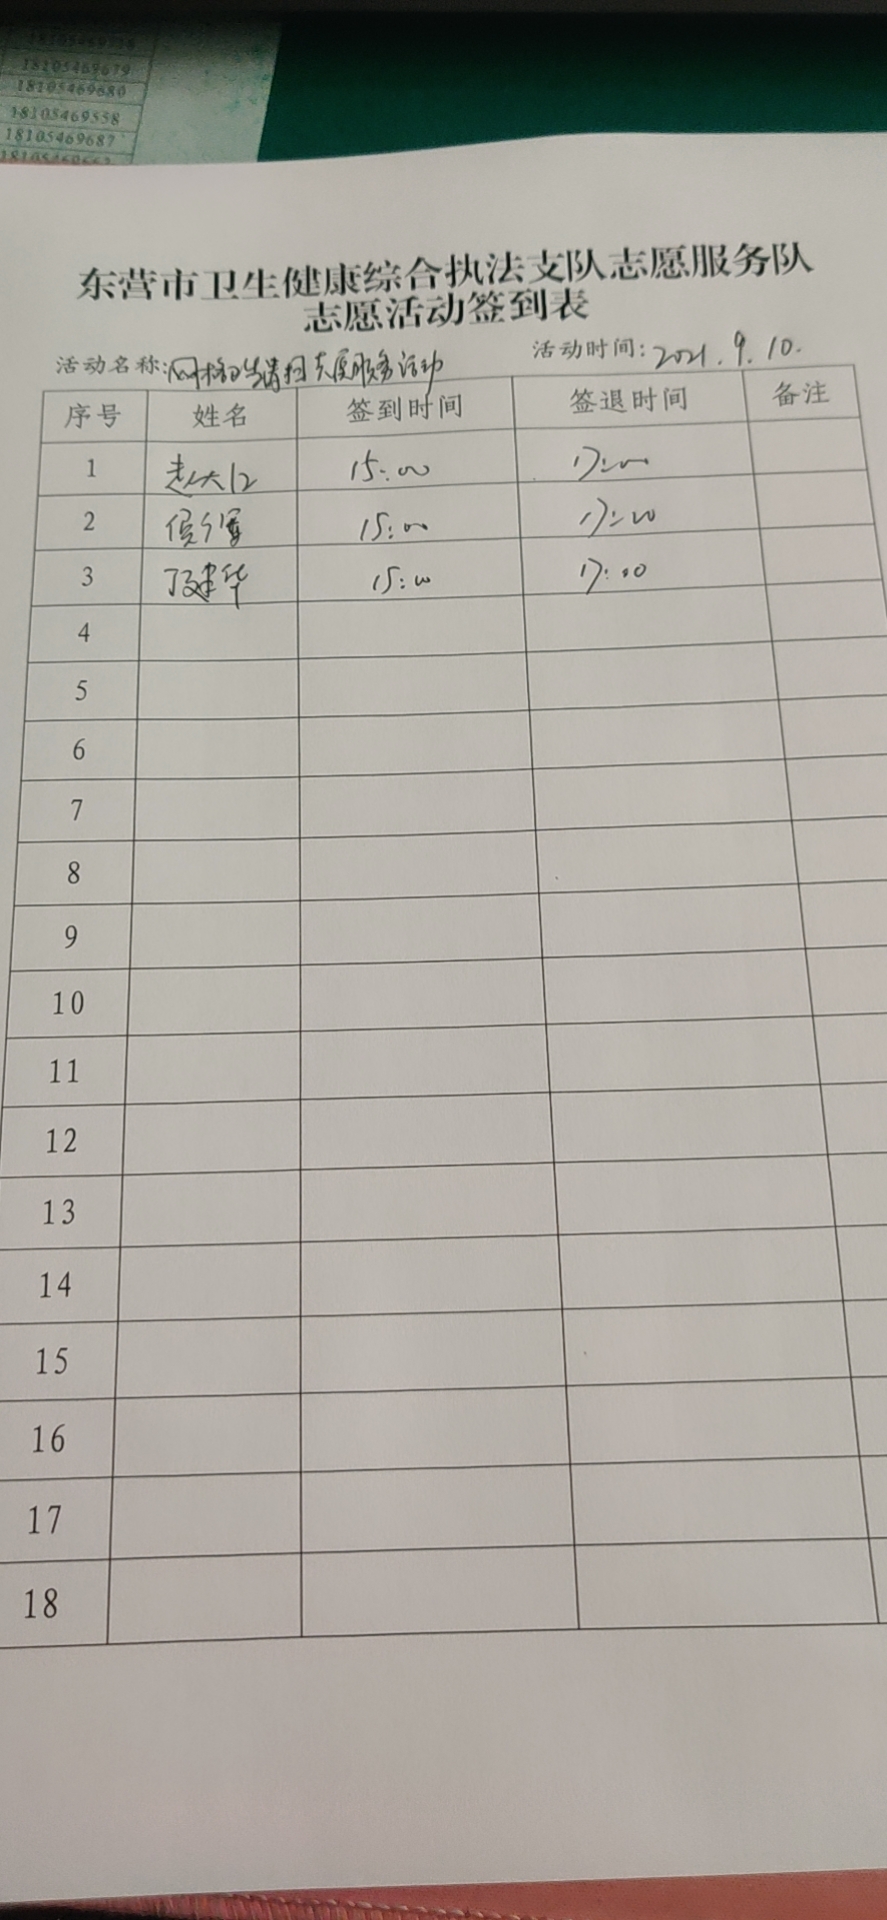 18105469679
18105469680
18105469558
18105469687
东营市卫生健康综合执法支队志愿服务队
志愿活动签到表
活动名称:网格卫生清扫志愿服务活动 活动时间:2021.9.10.
序号 姓名 签到时间 签退时间 备注
1 15:00 17:00
2 15:00 17:00
3 丁建华 15:00 17:00
4
5
6
7
8
9
10
11
12
13
14
15
16
17
18